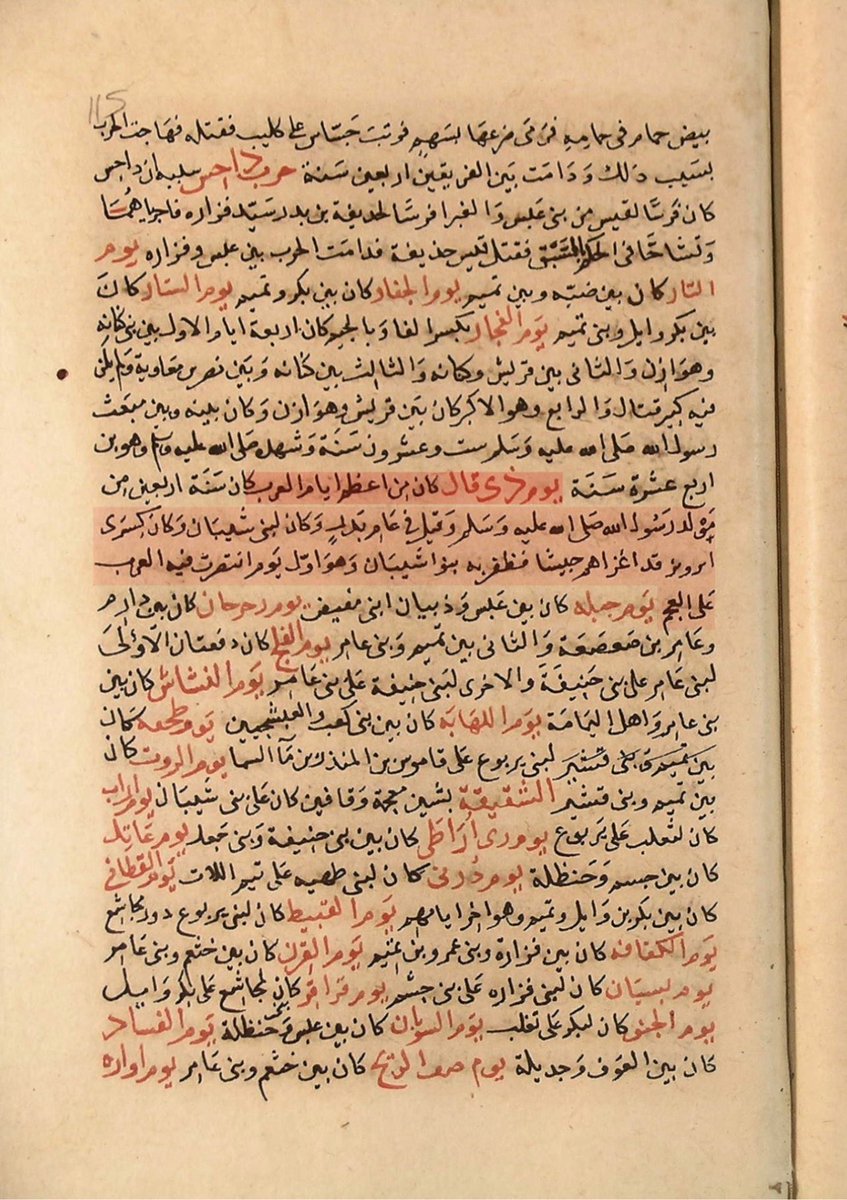 115
بيض حمام فى حمايه فرمى ضرعها بسهم فوثب جساس على كليب فقتله فهاجت الحرب
بسبب ذلك ودامت بين الفريقين اربعين سنة حرب داحس سببه ان داحس
كان فرسا لقيس من بنى عبس والغبرا فرسا لحذيفة بن بدر سيد فزاره فاجرياهما
وتشاحا فى السبق فقتل قيس حذيفة فدامت الحرب بين عبس وفزاره يوم
النسار كان بين ضبه وبين تميم يوم الجفار كان بين بكر وتميم يوم الستار كان
بين بكر وايل وبنى تميم يوم الفجار بكسر الفا وبالجيم كان اربعة ايام الاول بين بنى كنانه
وهوازن والثانى بين قريش وكنانه والثالث بين كنانه وبين نصر بن معاوية ولم يكن
فيه كبير قتال والرابع وهو الاكبر كان بين قريش وهوازن وكان بينه وبين مبعث
رسول الله صلى الله عليه وسلم ست وعشرون سنة وشهده صلى الله عليه وسلم وهو بن
اربع عشرة سنة يوم ذى قار كان من اعظم ايام العرب كان سنة اربعين من
مولد رسول الله صلى الله عليه وسلم وقيل فى عام بدر وكان لبنى شيبان وكان كسرى
ابرويز قد اغزاهم جيشا فظفر به بنوا شيبان وهو اول يوم انتصرت فيه العرب
على العجم يوم جبله كان بين عبس وذبيان ابنى مغيض يوم رحرحان كان بين دارم
وعامر بن صعصعة والثانى بين تميم وبنى عامر يوم الفلج كان دفعتان الاولى
لبنى عامر على بنى حنيفة والاخرى لبنى حنيفة على بنى عامر يوم النشاش كان بين
بنى عامر واهل اليمامة يوم اللهابه كان بين بنى كعب والعبشميين يوم طخفه كان
لبنى يربوع على قابوس بن المنذر بن مآ السما يوم المروت كان
بين تميم وبنى قشير الشقيقة بشين معجمة وقافين كان على بنى شيبان يوم اراب
كان لتغلب على يربوع يوم ذى اراطى كان بين بنى حنيفة وبنى جعد يوم عاقل
كان بين جسم وحنظلة يوم درنى كان لبنى طهيه على تيم اللات يوم القطانى
كان بين بكر بن وايل وتميم وهو اخر ايامهم يوم الغبيط كان لبنى يربوع دون مجاشع
يوم الكفافه كان بين فزارة وبنى عمرو بن تميم يوم القرن كان بين خثعم وبنى عامر
يوم بسيان كان لبنى فزاره على بنى جشم يوم قراقر كان لمجاشع على بكر وايل
يوم الحنو كان لبكر على تغلب يوم السوبان كان بين عبس وحنظلة يوم الفساد
كان بين الغوث وجديلة يوم صف الريح كان بين خثعم وبنى عامر يوم اواره